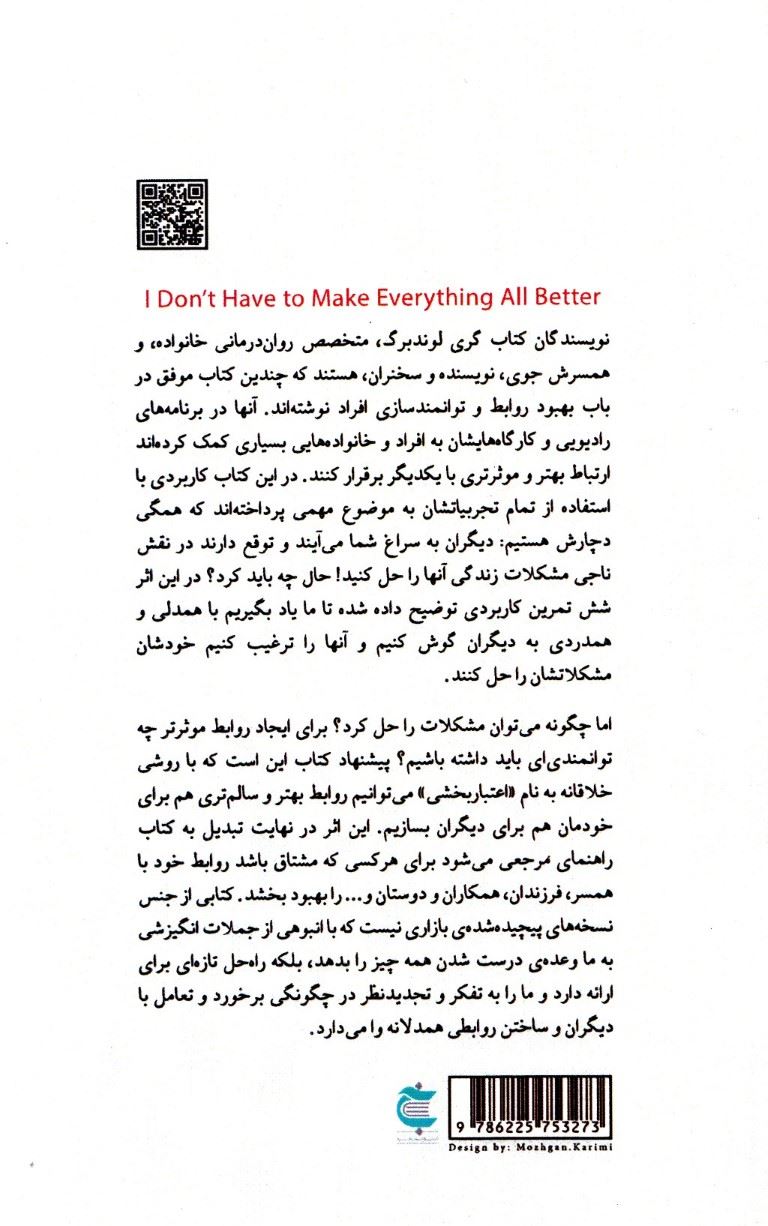 I Don't Have to Make Everything All Better
نویسندگان کتاب گری لوندبرگ، متخصص روان‌درمانی خانواده، و
همسرش جوی، نویسنده و سخنران، هستند که چندین کتاب موفق در
باب بهبود روابط و توانمندسازی افراد نوشته‌اند. آنها در برنامه‌های
رادیویی و کارگاه‌هایشان به افراد و خانواده‌هایی بسیاری کمک کرده‌اند
ارتباط بهتر و موثرتری با یکدیگر برقرار کنند. در این کتاب کاربردی با
استفاده از تمام تجربیاتشان به موضوع مهمی پرداخته‌اند که همگی
دچارش هستیم: دیگران به سراغ شما می‌آیند و توقع دارند در نقش
ناجی مشکلات زندگی آنها را حل کنید! حال چه باید کرد؟ در این اثر
شش تمرین کاربردی توضیح داده شده تا ما یاد بگیریم با همدلی و
همدردی به دیگران گوش کنیم و آنها را ترغیب کنیم خودشان
مشکلاتشان را حل کنند.
اما چگونه می‌توان مشکلات را حل کرد؟ برای ایجاد روابط موثرتر چه
توانمندی‌ای باید داشته باشیم؟ پیشنهاد کتاب این است که با روشی
خلاقانه به نام «اعتباربخشی» می‌توانیم روابط بهتر و سالم‌تری هم برای
خودمان هم برای دیگران بسازیم. این اثر در نهایت تبدیل به کتاب
راهنمای مرجعی می‌شود برای هرکسی که مشتاق باشد روابط خود با
همسر، فرزندان، همکاران و دوستان و... را بهبود بخشد. کتابی از جنس
نسخه‌های پیچیده‌شده‌ی بازاری نیست که با انبوهی از جملات انگیزشی
به ما وعده‌ی درست شدن همه چیز را بدهد، بلکه راه‌حل تازه‌ای برای
ارائه دارد و ما را به تفکر و تجدیدنظر در چگونگی برخورد و تعامل با
دیگران و ساختن روابطی همدلانه وا می‌دارد.
9 786225 753273
Design by: Mozhgan.Karimi